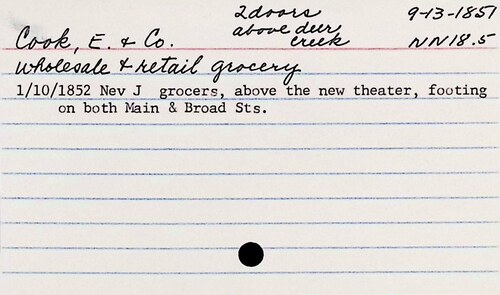 2 doors above deer creek
9-13-1851
Cook, E. & Co.
NN18.5
wholesale & retail grocery
1/10/1852 Nev J grocers, above the new theater, footing
on both Main & Broad Sts.